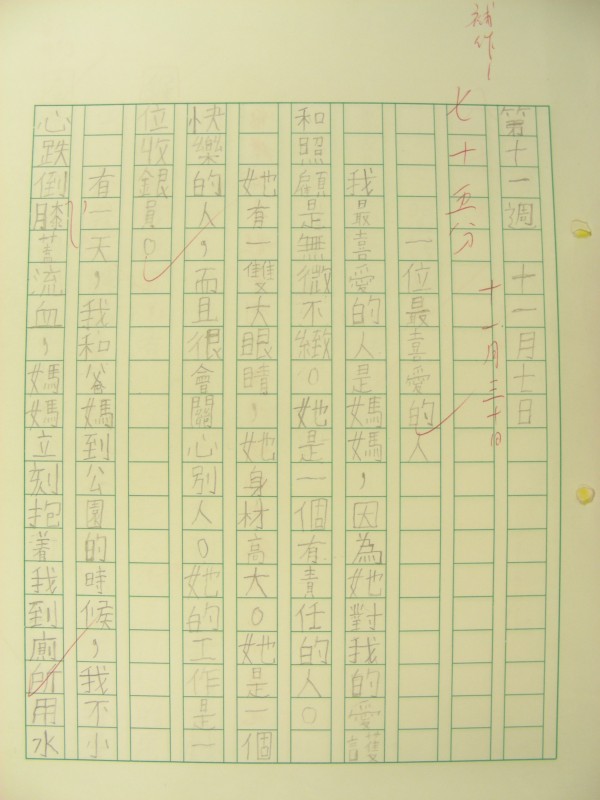 補作
第十一週　十一月七日
七十五分
十一月三十日
一位最喜愛的人
我最喜愛的人是媽媽，因為她對我的愛護
和照顧是無微不緻。她是一個有責任的人。
她有一雙大眼睛，她身材高大。她是一個
快樂的人，而且很會關心別人。她的工作是一
位收銀員。
有一天，我和爸媽到公園的時候，我不小
心跌倒膝蓋流血，媽媽立刻抱着我到廁所用水